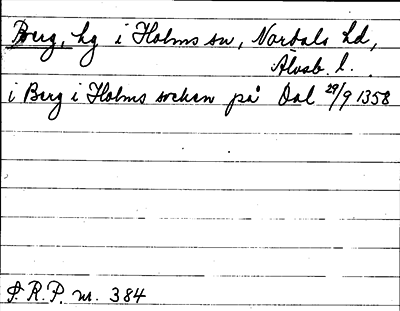 Berg, hg i Holms sn, Nordals hd,
Älvsb. l.
i Berg i Holms socken på Dal 29/9 1358
S.R.P. nr. 384